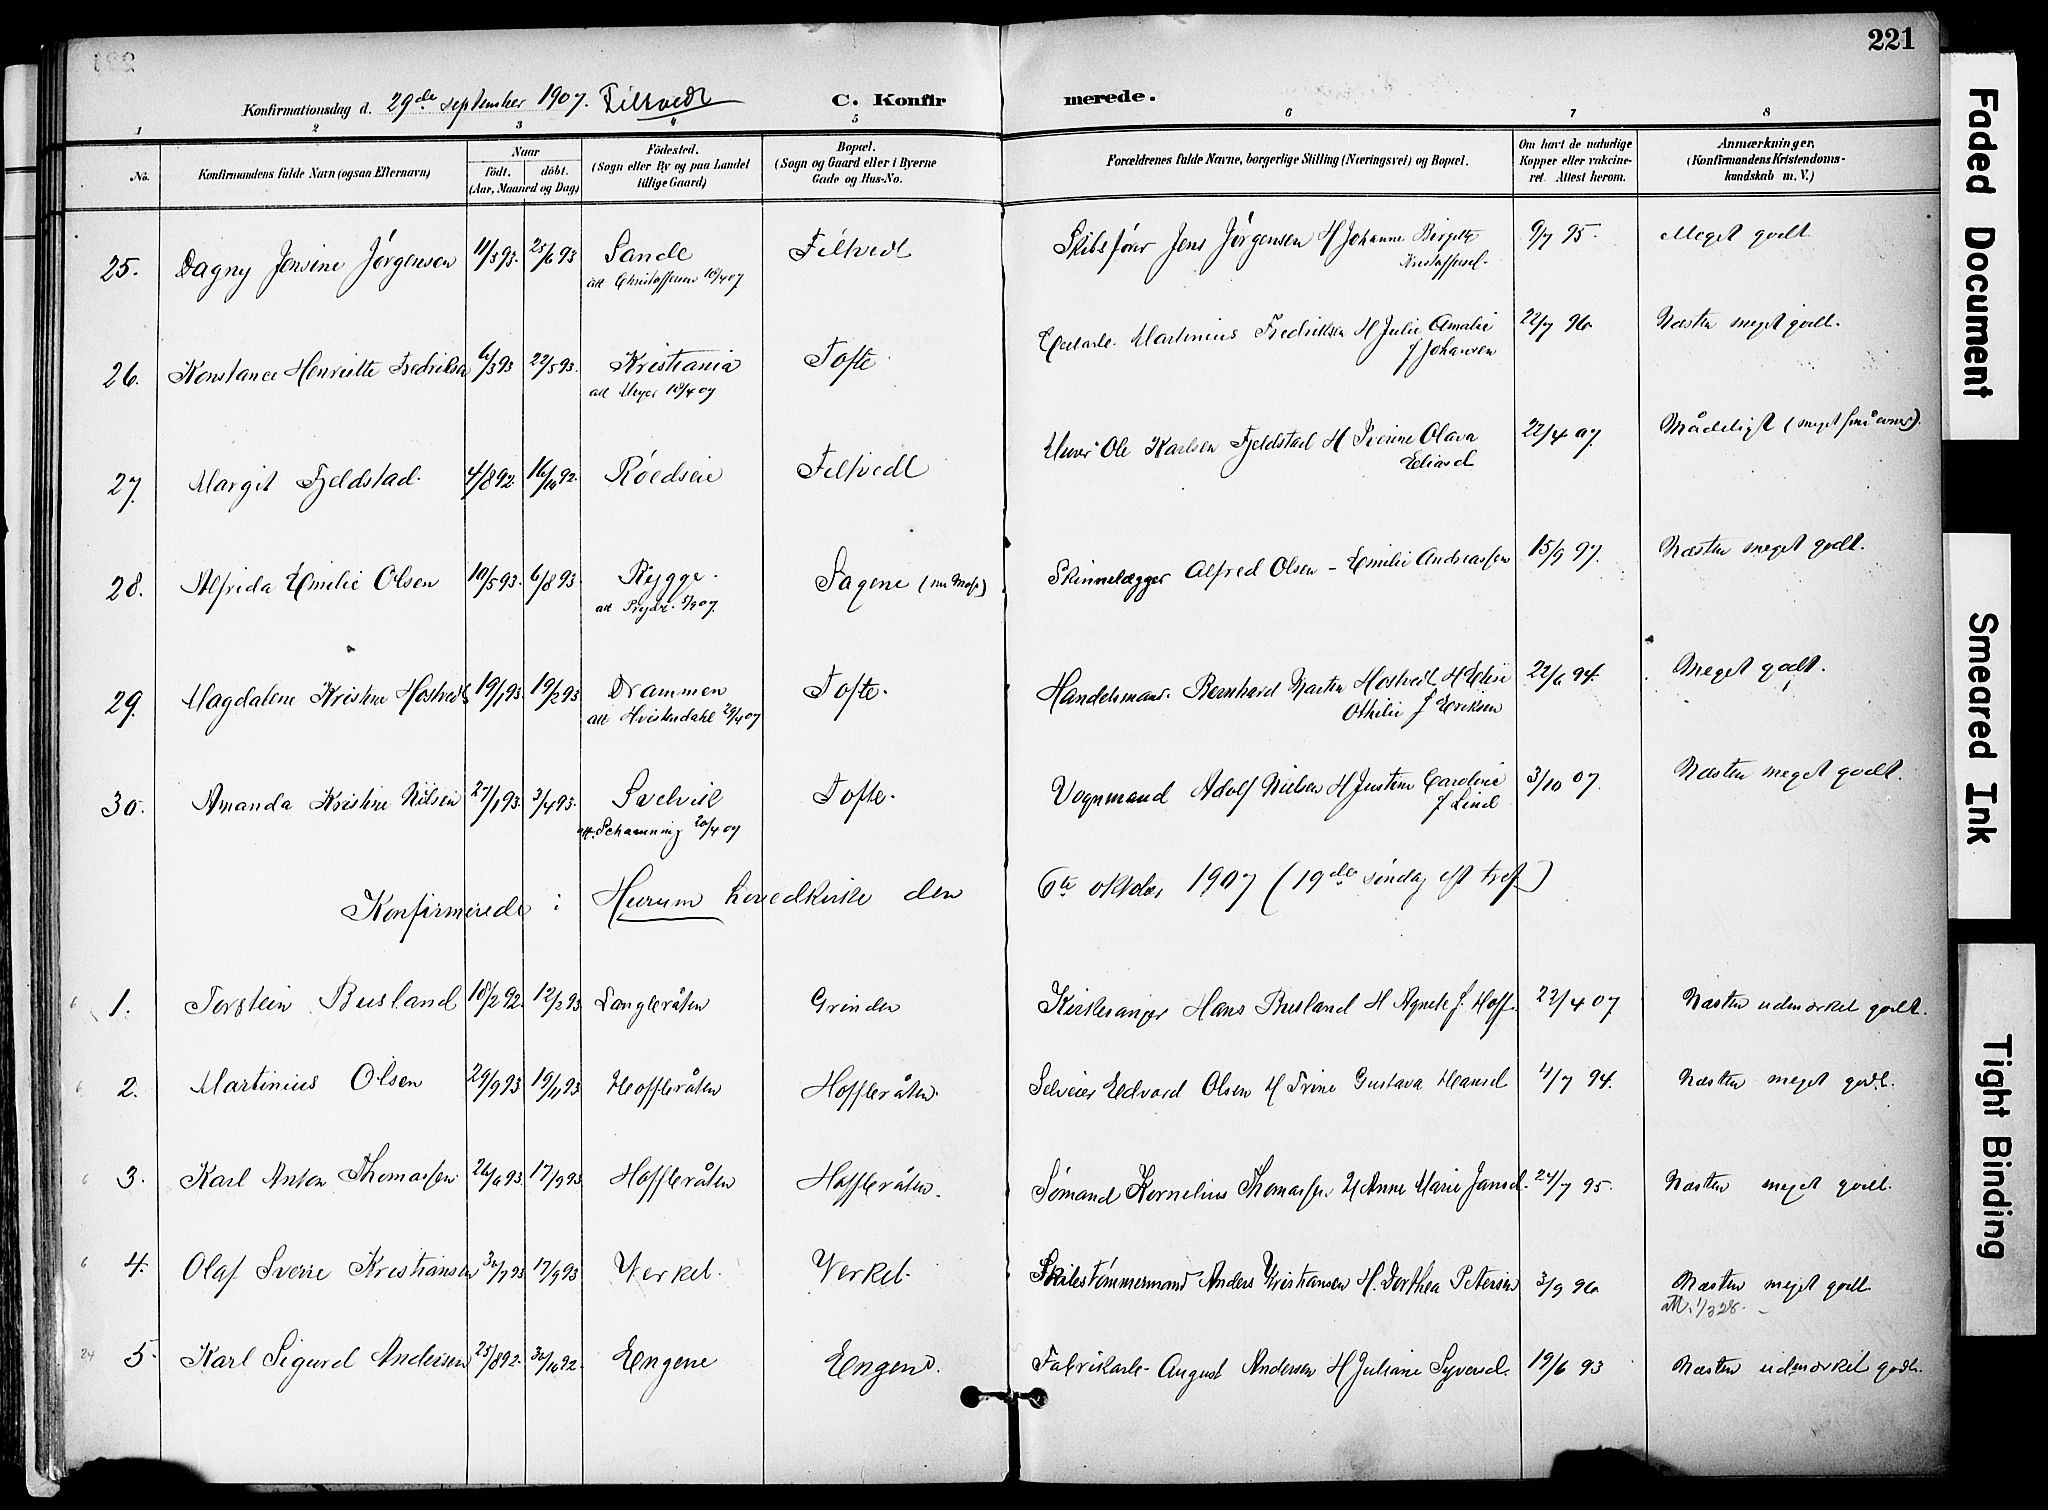 221
Konfirmationsdag d. 29de september 1907. Filtvedt C. Konfirmerede.
1 2 3 4 5 6 7 8
No. Konfirmandens fulde Navn (ogsaa Efternavn) Naar født. døbt. (Aar, Maaned og Dag) Födested. (Sogn eller By og paa Landet tillige Gaard) Bopæl. (Sogn og Gaard eller i Byerne Gade og Hus-No. Forældrenes fulde Navne, borgerlige Stilling (Næringsvei) og Bopæl. Om havt de naturlige Kopper eller vakcineret. Attest herom. Anmærkninger, (Konfirmandens Kristendomskundskab m. V.)
25. Dagny Jensine Jørgensen 11/3 93. 25/6 93 Sande Filtvedt Skibsfører Jens Jørgensen H Johanne Birgitte 9/7 95. Meget godt
att Christoffersen 18/4 07 Kristoffersd.
26. Konstance Henriette Fredriksen 6/3 93 22/5 93. Kristiania Tofte Martinius Fredriksen H Julie Amalie 22/7 96 Næsten meget godt.
att Meyer 18/4 07 f Johansen
27. Margit Fjeldstad. 4/8 92. 16/10 92. Røedseie Filtvedt Murer Ole Karlsen Fjeldstad H Olava 22/4 07. Mådeligt (meget små evner).
Eliasd
28. Alfrida Emilie Olsen 10/5 93. 6/8 93 Rygge. Sagene (nu Moss) Skinnelægger Alfred Olsen - Emilie Andreassen 15/9 97. Næsten meget godt.
att Prydz. 5/9 07.
29. Magdalene Kristine Hostvedt 19/1 93. 19/2 93 Drammen Tofte. Handelsmand. Bernhard Marten Hostvedt H Elise 22/6 94. Meget godt.
att Hvistendahl 29/4 07 Othilie f Eriksen
30. Amanda Kristine Nilsen 27/1 93. 3/4 93. Svelvik Tofte. Vognmand Adolf Nielsen H Justine Caroline 3/10 07. Næsten meget godt.
att. Schanning 20/4 07 f Lind
Konfirmerede i Hurum hovedkirke den 6te oktober 1907 (19de søndag eft tref)
1. Torstein Busland 18/2 92. 12/2 93 Langleråten Grinden Kirkesanger Hans Busland H Agnete f. Hoff. 22/4 07 Næsten udmærket godt.
2. Martinius Olsen 29/9 93 19/11 93 Hoffleråten Hoffleråten. Selveier Edvard Olsen H Trine Gustava Hansd 4/7 94. Næsten meget godt.
3. Karl Anton Thomassen 26/6 93 17/9 93 Hoffleråten Hoffleråten. Sømand Kornelius Thomassen H Anne Marie Jansd. 24/7 95. Næsten meget godt.
4. Olaf Sverre Kristiansen 30/7 93 17/9 93 Verket. Verket. Skibstømmermand Anders Kristiansen H. Dorthea Petersen 3/9 96 Næsten meget godt.
att. 1/3 28.
24 5. Karl Sigurd Andersen 25/8 92. 30/10 92. Engene Engene. Fabrikarb. August Andersen H Juliane Syversd. 19/6 93 Næsten udmærket godt.
Faded Document
Smeared Ink
Tight Binding